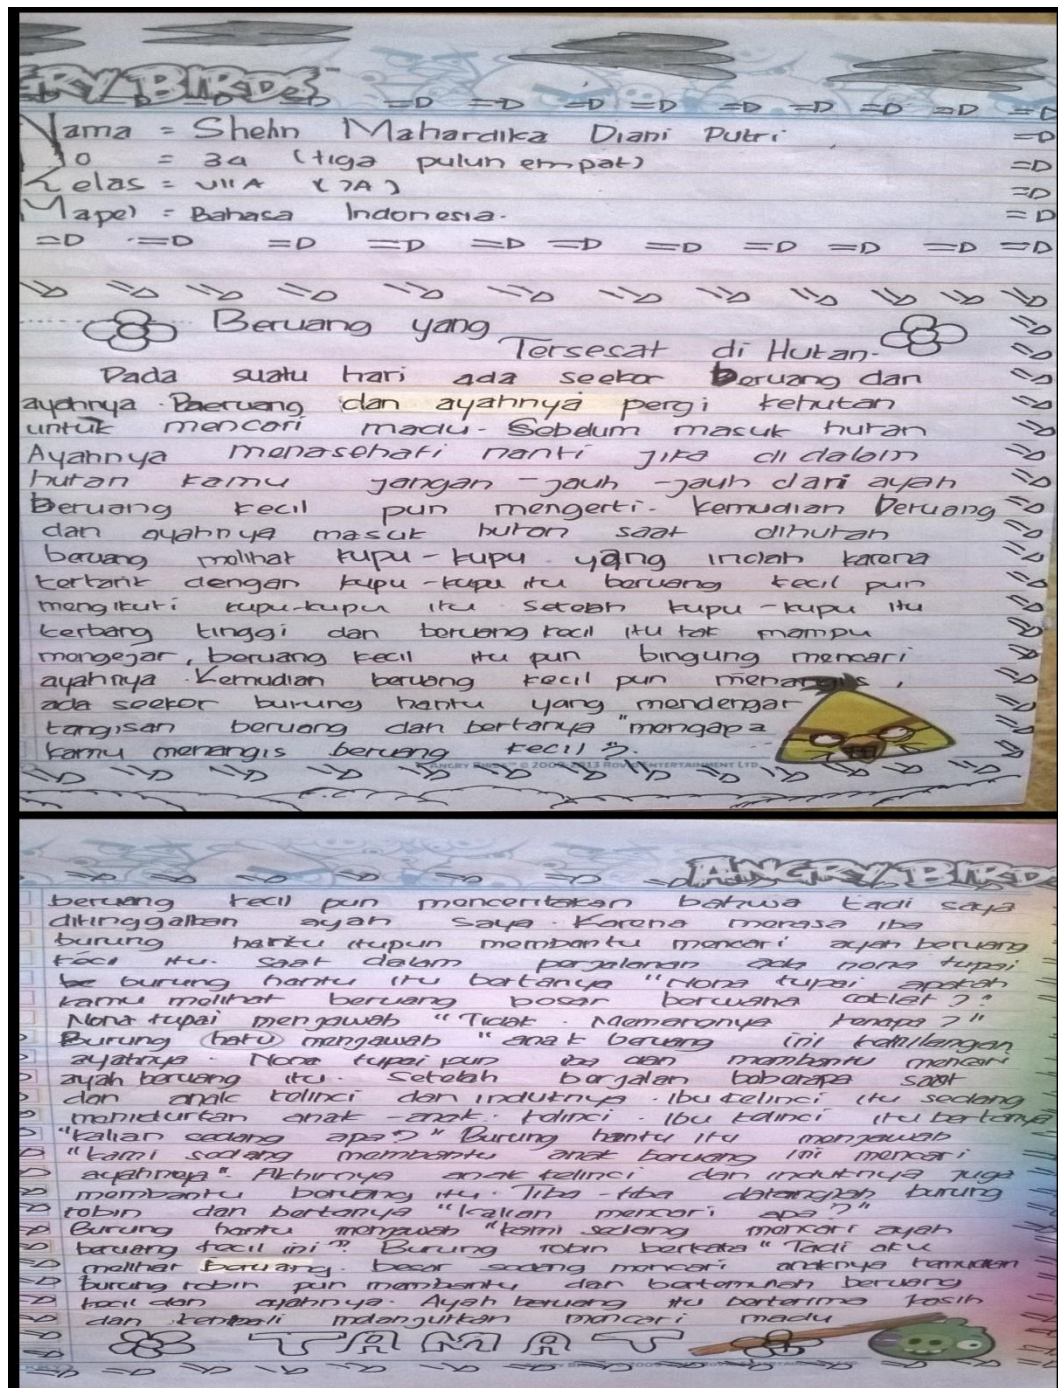 GRY BIRDS
=D =D =D =D =D =D =D =D =D
Nama = Shelin Mahardika Diani Putri =D
No = 34 (tiga puluh empat) =D
Kelas = VIIA (7A) =D
Mapel = Bahasa Indonesia. =D
=D =D =D =D =D =D =D =D =D =D =D
Beruang yang
Tersesat di Hutan.
Pada suatu hari ada seekor Beruang dan
ayahnya. Baeruang dan ayahnya pergi kehutan
untuk mencari madu. Sebelum masuk hutan
Ayahnya menasehati nanti jika di dalam
hutan kamu jangan -jauh -jauh dari ayah
Beruang kecil pun mengerti. Kemudian Beruang
dan ayahnya masuk hutan saat dihutan
beruang melihat kupu-kupu yang indah karena
tertarik dengan kupu-kupu itu beruang kecil pun
mengikuti kupu-kupu itu. Setelah kupu-kupu itu
terbang tinggi dan beruang kecil itu tak mampu
mengejar, beruang kecil itu pun bingung mencari
ayahnya. Kemudian beruang kecil pun menangis,
ada seekor burung hantu yang mendengar
tangisan beruang dan bertanya "mengapa
kamu menangis beruang kecil?".
ANGRY BIRDS™ © 2009-2013 ROVIO ENTERTAINMENT LTD.
ANGRY BIRD
beruang kecil pun menceritakan bahwa tadi saya
ditinggalkan ayah saya. Karena merasa iba
burung hantu itupun membantu mencari ayah beruang
kecil itu. saat dalam perjalanan ada nona tupai
burung hantu itu bertanya "Nona tupai apakah
kamu melihat beruang besar berwana coklat?"
Nona tupai menjawab "Tidak. Memangnya kenapa?"
Burung (hatu) menjawab "anak beruang ini kehilangan
ayahnya. Nona tupai pun iba dan membantu mencari
ayah beruang itu. Setelah berjalan beberapa saat
dan anak kelinci dan induknya. Ibu kelinci itu sedang
menidurkan anak-anak kelinci. Ibu kelinci itu bertanya
"kalian sedang apa?" Burung hantu itu menjawab
"kami sedang membantu anak beruang ini mencari
ayahnya". Akhirnya anak kelinci dan induknya juga
membantu beruang itu. Tiba-tiba datanglah burung
robin dan bertanya "kalian mencari apa?"
Burung hantu menjawab "kami sedang mencari ayah
beruang kecil ini". Burung robin berkata "Tadi aku
melihat beruang besar sedang mencari anaknya kemudian
burung robin pun membantu dan bertemulah beruang
kecil dan ayahnya. Ayah beruang itu berterima kasih
dan kembali melanjutkan mencari madu
TAMAT